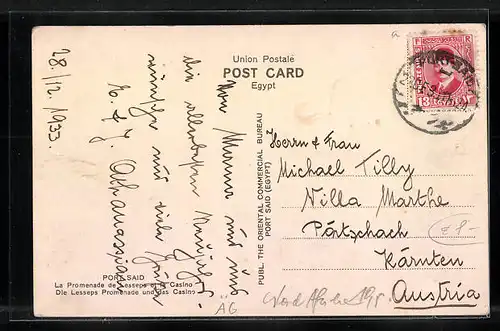 Union Postale
POST CARD
Egypt
28/12. 1933.
Von Mama und uns
die allerbesten Neujahrs-
wünsche und viele Grüße
E. & J. Athanassian
PUBL. THE ORIENTAL COMMERCIAL BUREAU
PORT SAID (EGYPT)
Herrn & Frau
Michael Tilly
Villa Marthe
Pörtschach
Kärnten
Austria
PORT SAID
La Promenade de Lesseps et le Casino
Die Lesseps Promenade und das Casino
ÄG